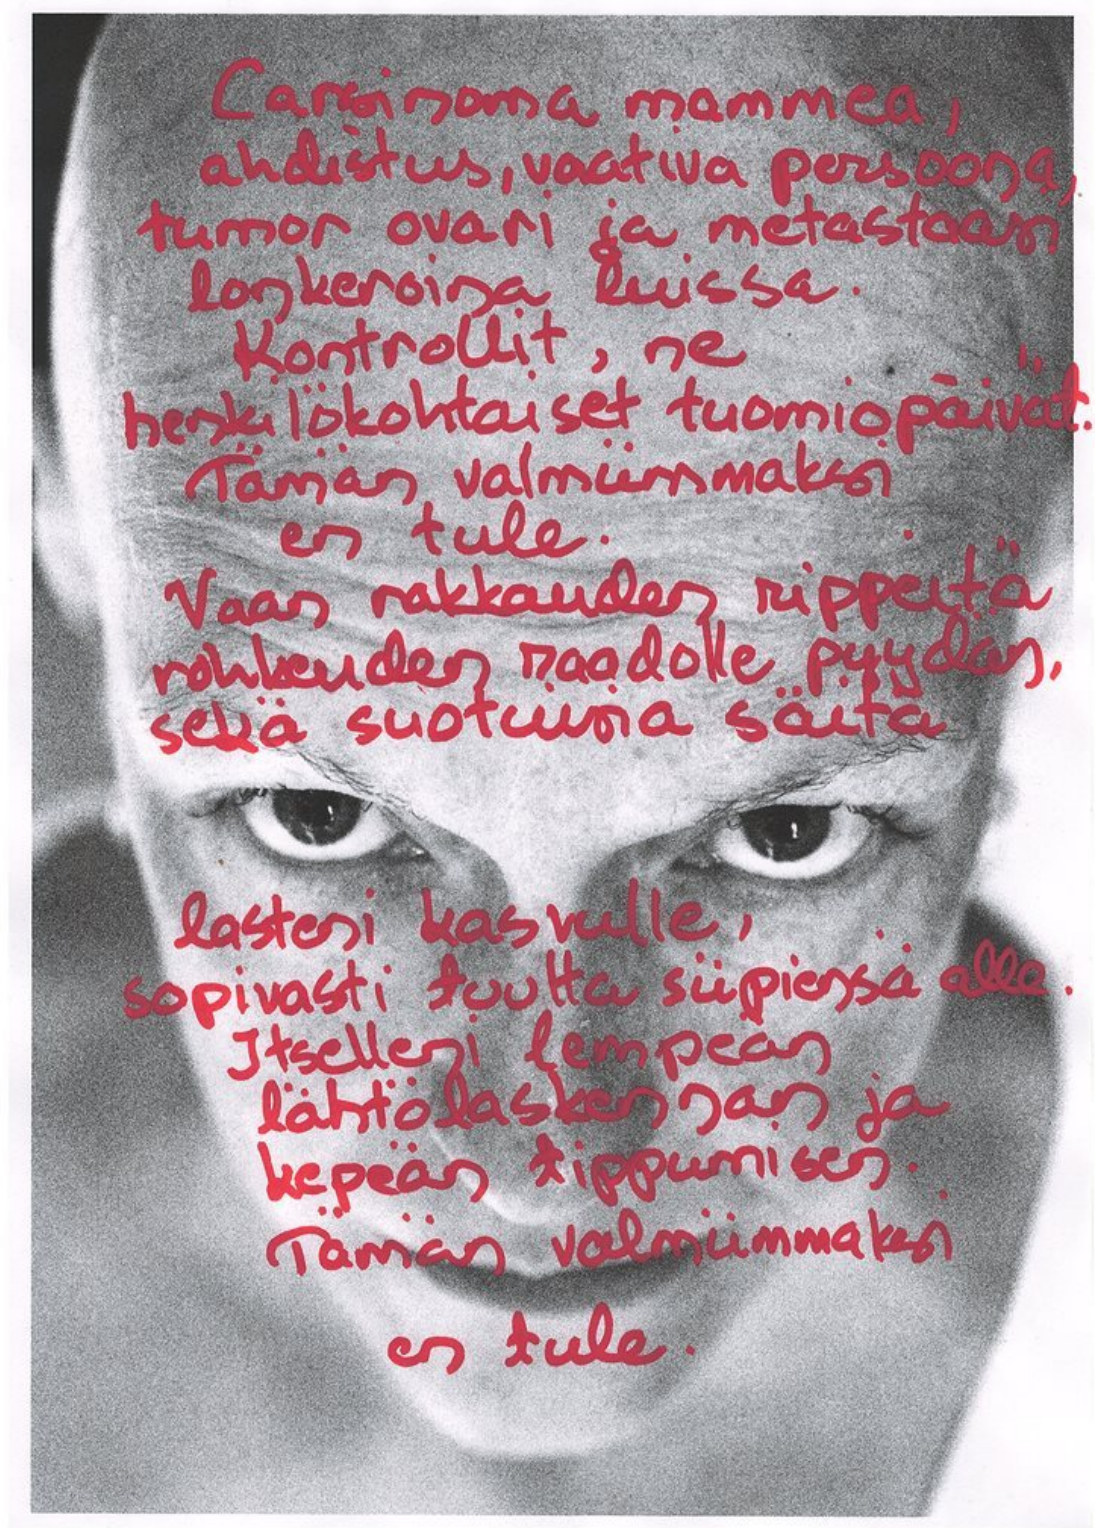 Carsinoma mammea,
ahdistus, vaativa persoona,
tumor ovari ja metastaasin
lonkeroina luissa.
Kontrollit, ne
henkilökohtaiset tuomiopäivät.
Tämän valmiimmaksi
en tule.
Vaan rakkauden rippeitä
rohkeuden raadolle pyydän,
sekä suotuisia säitä
lasteni kasvulle,
sopivasti tuulta siipiensä alle.
Itselleni lempeän
lähtölaskennan ja
kepeän tippumisen.
Tämän valmiimmaksi
en tule.